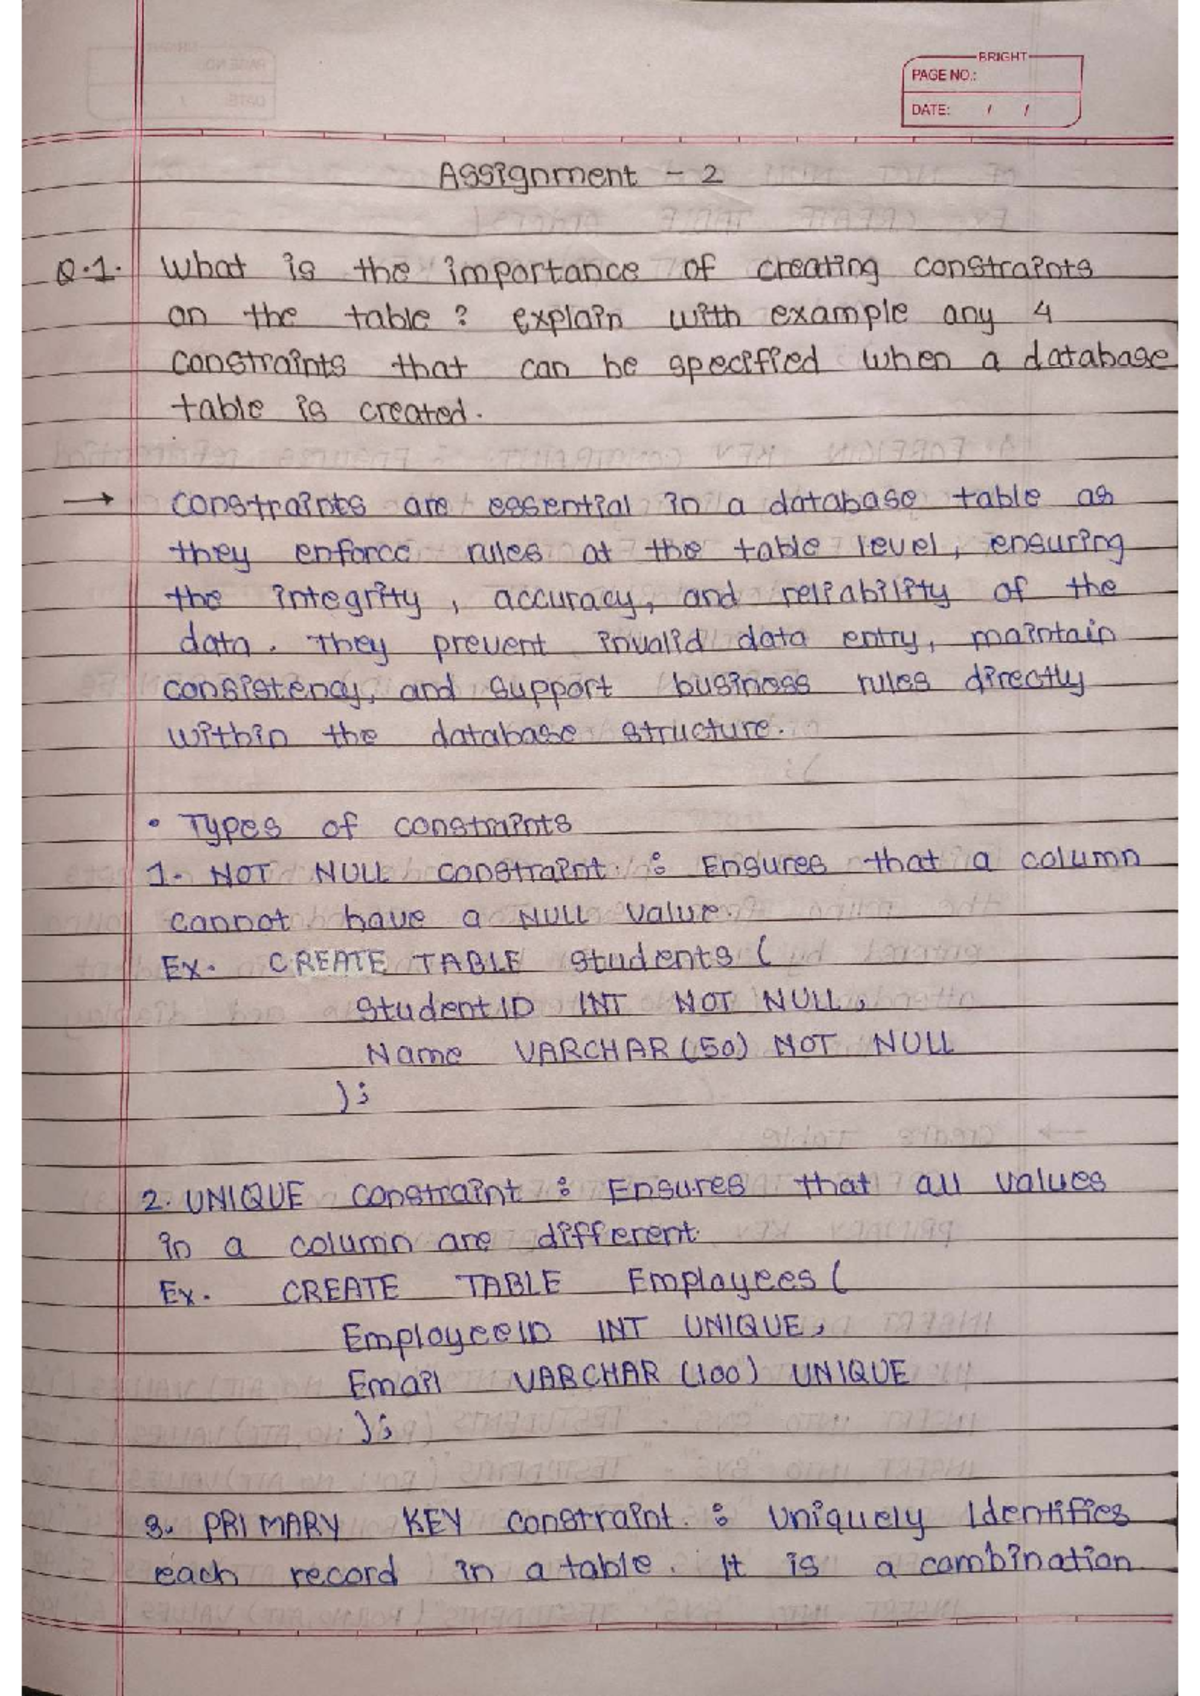 BRIGHT
PAGE NO.:
DATE: / /
Assignment - 2
Q.1. What is the importance of creating constraints
on the table? explain with example any 4
constraints that can be specified when a database
table is created.
→ constraints are essential in a database table as
they enforce rules at the table level, ensuring
the integrity, accuracy, and reliability of the
data. They prevent invalid data entry, maintain
consistency, and support business rules directly
within the database structure.
• Types of constraints
1. NOT NULL constraint : Ensures that a column
cannot have a NULL value.
Ex. CREATE TABLE Students (
StudentID INT NOT NULL,
Name VARCHAR(50) NOT NULL
);
2. UNIQUE constraint : Ensures that all values
in a column are different.
Ex. CREATE TABLE Employees (
EmployeeID INT UNIQUE,
Email VARCHAR (100) UNIQUE
);
3. PRIMARY KEY constraint. : Uniquely Identifies
each record in a table. It is a combination